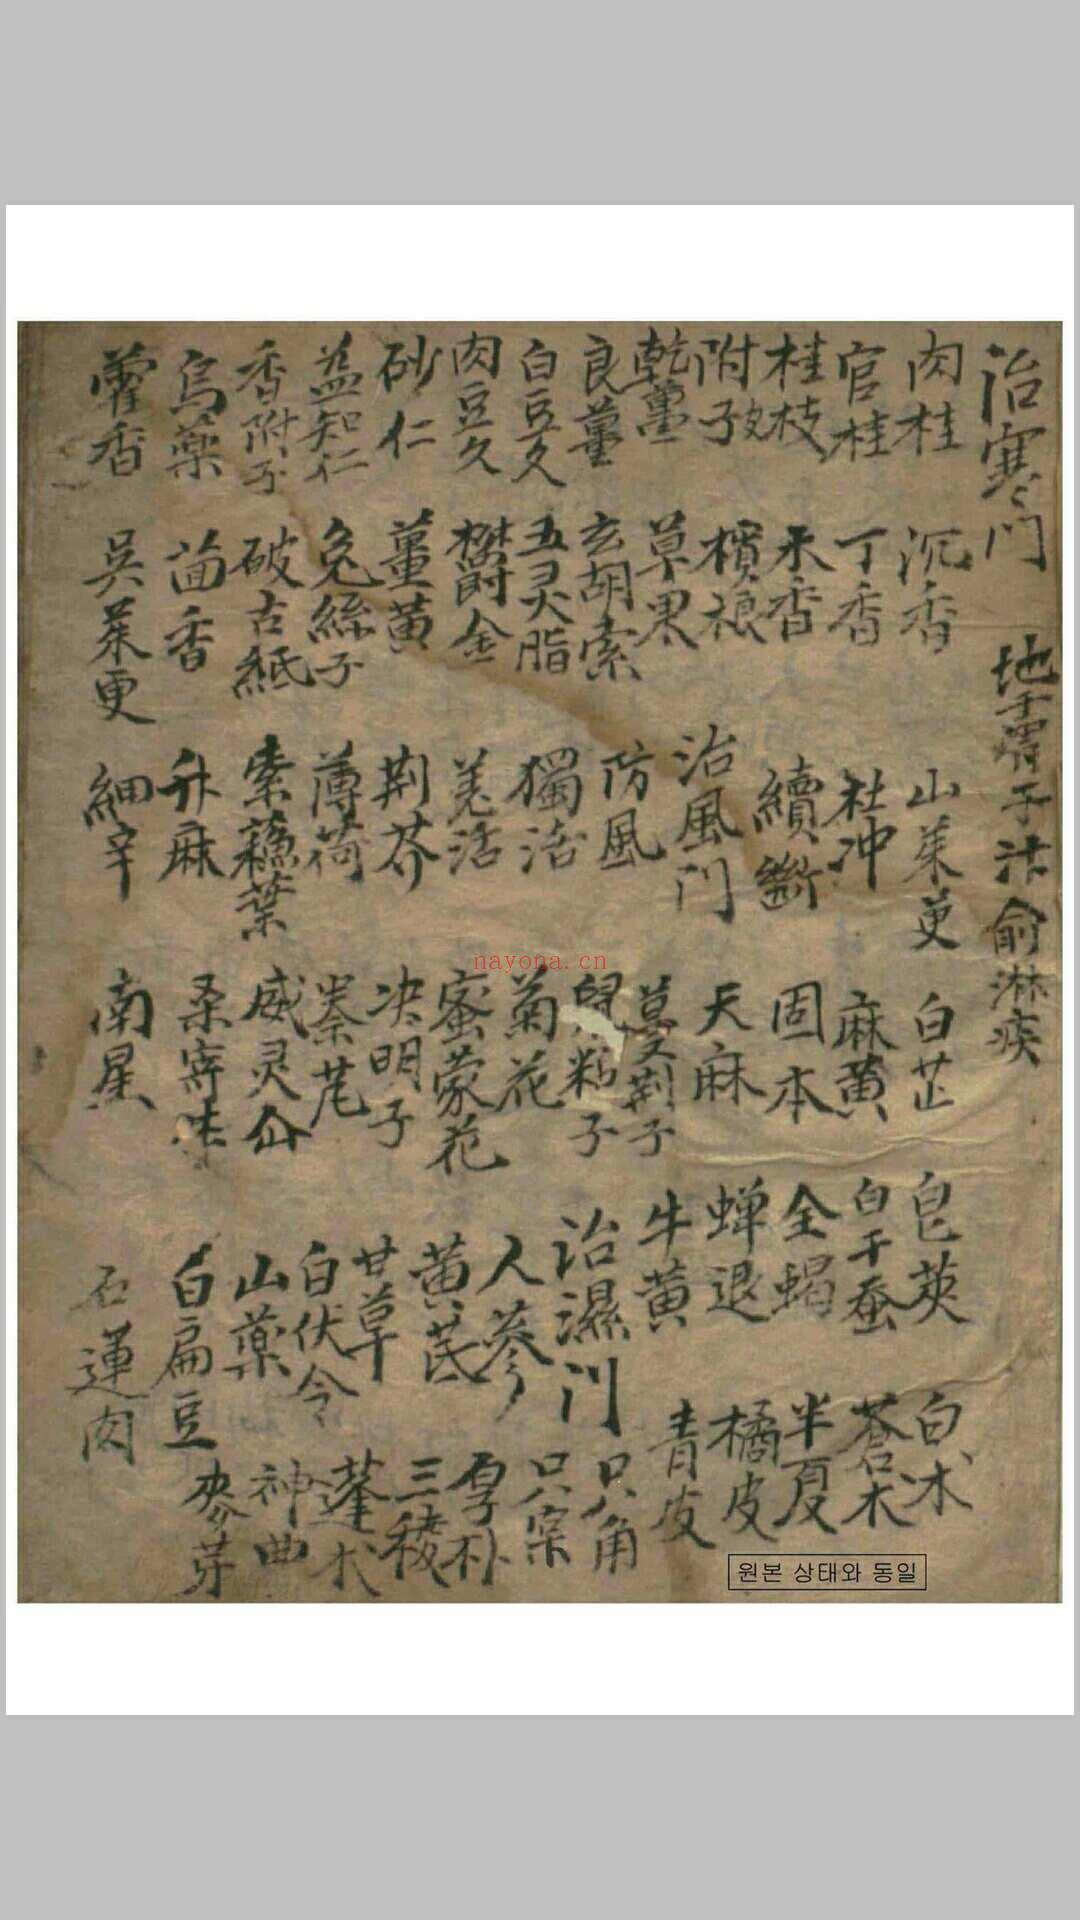 治寒門
肉桂
官桂
桂枝
附子
乾薑
良薑
白豆久
肉豆久
砂仁
益知仁
香附子
烏藥
藿香
沉香
丁香
木香
檳榔
草果
玄胡索
五灵脂
欝金
薑黄
兔絲子
破古紙
茴香
吳茱更
山茱更
杜冲
續斷
治風門
防風
獨活
羌活
荆芥
薄荷
紫蘓葉
升麻
細辛
白芷
麻黄
固本
天麻
蔓荆子
鼠粘子
菊花
蜜蒙花
决明子
秦芃
威灵仙
桑寄生
南星
皂莢
白干蚕
全蝎
蝉退
牛黄
治濕門
人參
黄芪
甘草
白伏令
山藥
白扁豆
石蓮肉
白朮
蒼朮
半夏
橘皮
青皮
只角
只宲
厚朴
三稜
蓬朮
神曲
麥芽
nayona.cn
원본 상태와 동일